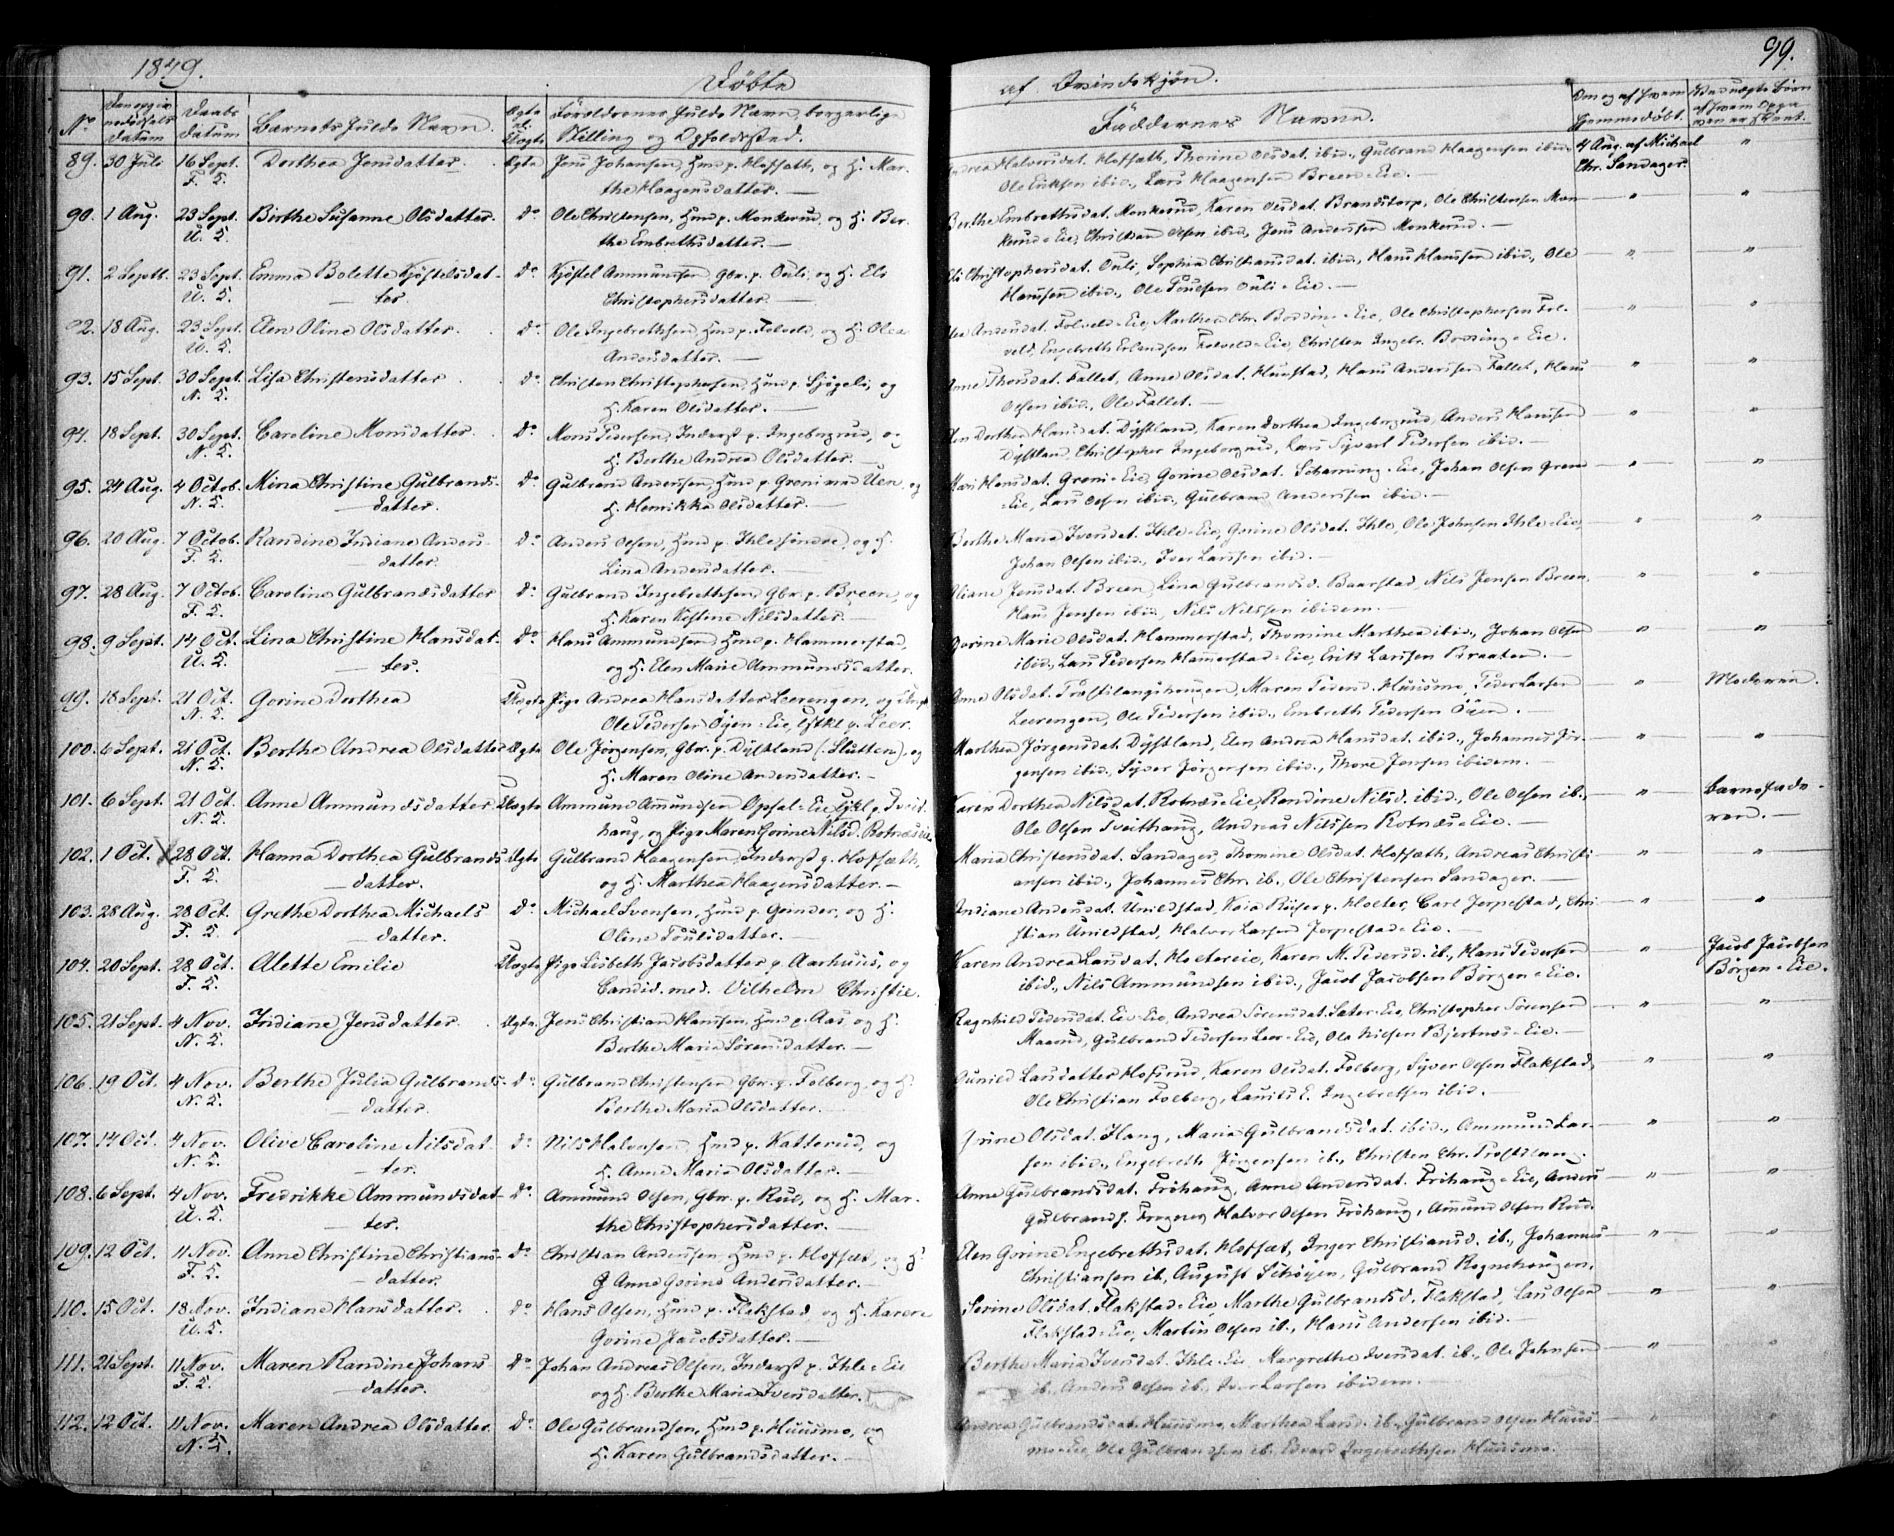 1849.
Döbte
af Qvindekjön.
99.
No
Den opgivne Födsels Datum
Daabs Datum
Barnets fulde Navn.
Ægte el. Uægte
Forældrenes fulde Navn, borgerlige Stilling og Opholdssted.
Faddernes Navne.
Om og af hvem Hjemmedöbt.
Ved uægte Börn af hvem Opgaven er skeet.
89. 30 Juli 16 Sept. Dorthea Jensdatter. Ægte Jens Johansen, Hmd p. Hoffath, og H. Mar-
F. K. the Haagensdatter. —
Andrea Halvorsdat. Hoffath, Thorine Olsdat. ibid., Gulbrand Haagensen ibid., 4 Aug. af Michael "
Ole Eriksen ibid., Lars Haagensen Breen-Eie. — Chr. Sandager.
90. 1 Aug. 23 Sept. Birthe Susanne Olsdatter. Do Ole Christensen, Hmd p. Monkerud, og H. Ber-
U. K. the Embrethsdatter. —
Berthe Embrethsdat. Monkerud, Karen Olsdat. Brandstorp, Ole Christensen Mon- " "
kerud-Eie, Christian Olsen ibid., Jens Anderssen Monkerud. —
91. 2 Septl. 23 Sept. Emma Bolette Kjöstelsdat- Do Kjöstel Ammundsen, Gbr. p. Ouli, og H. Eli
U. K. — ter. Christophersdatter. —
Eli Christophersdat. Ouli, Sophia Christiansdat. ibid., Hans Hanssen ibid., Ole " "
Hanssen ibid., Ole Poulsen Ouli-Eie. —
92. 18 Aug. 23 Sept. Elen Oline Olsdatter. Do Ole Ingebrethsen, Hmd p. Folveld, og H. Olea
U. K. Andersdatter. —
Olea Andersdat. Folveld-Eie, Marthea Chr. Bossing-Eie, Ole Christophersen Fol- " "
veld, Engebreth Erlandsen Folveld-Eie, Christen Ingebr. Bossing-Eie.
93. 15 Sept. 30 Sept. Lisa Christensdatter. Do Christen Christophersen, Hmd p. Sjögeli, og
N. K. H. Karen Olsdatter. —
Anne Thorsdat. Fallet, Anne Olsdat. Hunstad, Hans Anderssen Fallet, Hans " "
Olsen ibid., Ole Fallet. —
94. 18 Sept. 30 Sept. Caroline Monsdatter. Do Mons Pedersen, Inderst p. Ingeborgrud, og
N. K. H. Berthe Andrea Olsdatter. —
Elen Dorthea Hansdat. Dystland, Karen Dorthea Ingeborgrud, Anders Hanssen " "
Dystland, Christopher Ingeborgrud, Lars Syvert Pedersen ibid. —
95. 24 Aug. 4 Octob. Mina Christine Gulbrands- Do Gulbrand Anderssen, Hmd p. Greni ved Uen, og
N. K. — datter. H. Henrikka Olsdatter. —
Mari Hansdat. Greni-Eie, Gorine Olsdat. Scharning-Eie, Johan Olsen Greni " "
-Eie, Lars Olsen ibid., Gulbrand Anderssen ibid. —
96. 20 Aug. 7 Octob. Randine Indiane Anders- Do Anders Olsen, Hmd p. Ihle söndre, og H.
F. K. — datter. Lina Andersdatter. —
Berthe Maria Iversdat. Ihle-Eie, Gorine Olsdat. Ihle, Ole Johnsen Ihle-Eie, " "
Johan Olsen ibid., Iver Larssen ibid. —
97. 28 Aug. 7 Octob. Caroline Gulbrandsdatter Do Gulbrand Ingebrethsen, Gbr. p. Breen, og
F. K. H. Karen Kistine Nilsdatter. —
Eliane Jensdat. Breen, Lina Gulbrandsd. Baarstad, Nils Jensen Breen, " "
Hans Jensen ibid., Nils Nilssen ibidem. —
98. 9 Sept. 14 Oct. Lina Christine Hansdat- Do Hans Ammundsen, Hmd p. Hammerstad,
U. K. — ter. og H. Elen Marie Ammundsdatter.
Dorine Marie Olsdat. Hammerstad, Thomine Marthea ibid., Johan Olsen " "
ibid., Lars Pedersen Hamerstad-Eie, Erik Larssen Braaten. —
99. 18 Sept. 21 Oct. Gorine Dorthea Uægte Pige Andrea Hansdatter Leerengen, og
N. K. Ole Pedersen Öyen-Eie, Eftkl p. Leer.
Anne Olsdat. Trostilangshougen, Maren Pedersd. Huusmo, Peder Larsen " Moderen.
Leerengen, Ole Pedersen ibid., Embreth Pedersen Öien. —
100. 6 Sept. 21 Oct. Berthe Andrea Olsdatter Ægte Ole Jörgensen, Gbr. p. Dystland (: Slutten), og
N. K. H. Maren Oline Andersdatter. —
Marthea Jörgensdat. Dystland, Elen Andrea Hansdat. ibid., Johannes Jör- " "
gensen ibid., Syver Jörgensen ibid., Thore Jensen ibidem. —
101. 6 Sept. 21 Oct. Anne Ammundsdatter Uægte Ammund Amundsen Opsal-Eie, Ugkl p. Tveit-
N. K. haug, og Pige Maren Gorine Nilsd. Rotnæseie.
Karen Dorthea Nilsdat. Rotnæs-Eie, Randine Nilsd. ibid., Ole Olsen ib., " Barnefade-
Ole Olsen Tveithaug, Andreas Nilssen Rotnæs-Eie. — ren. —
102. 1 Oct. 28 Oct. Hanna Dorthea Gulbrands- Ægte Gulbrand Haagensen, Inderst p. Hoffæth,
F. K. — datter. og H. Marthea Haagensdatter. —
Maria Christensdat. Sandager, Thomine Olsdat. Hoffæth, Andreas Christi- " "
ansen ibid., Johannes Chr. ib., Ole Christensen Sandager. —
103. 28 Aug. 28 Oct. Grethe Dorthea Michaels Do Michael Svensen, Hmd p. Grinder, og H.
F. K. — datter. Oline Poulsdatter. —
Indiane Andersdat. Unildstad, Kaia Riiser p. Holter, Carl Jerpestad, Chri- " "
stian Unildstad, Halvor Larsen Jerpestad-Eie. —
104. 20 Sept. 28 Oct. Alette Emilie Uægte Pige Lisbeth Jacobsdatter p. Aarhuus, og
F. K. Candid. med. Vilhelm Christie.
Karen Andrea Larsdat. Holtereie, Karen M. Pedersd. ib., Hans Pedersen " Jacob Jacobsen
ibid., Nils Ammundsen ibid., Jacob Jacobsen Börgen-Eie. Börgen-Eie.
105. 21 Sept. 4 Nov. Indiane Jensdatter. Ægte Jens Christian Hanssen, Hmd p. Aas, og H.
N. K. Berthe Maria Sörensdatter. —
Ragnhild Pedersdat. Ei-Eie, Andrea Sörensdat. Sæter-Eie, Christopher Sörensen " "
Maarud, Gulbrand Pedersen Leer-Eie, Ole Nilsen Bjertnæs-Eie. —
106. 19 Oct. 4 Nov. Berthe Julia Gulbrands- Do Gulbrand Christensen, Gbr. p. Folberg, og H.
N. K. — datter. Berthe Maria Olsdatter. —
Gunild Larsdatter Hofsrud, Karen Olsdat. Folberg, Syver Olsen Flakstad, " "
Ole Christian Folberg, Laurits E. Ingebretsen ibid. —
107. 14 Oct. 4 Nov. Olive Caroline Nilsdat- Do Nils Halvorsen, Hmd p. Katterud, og
N. K. — ter. H. Anne Maria Olsdatter. —
Gorine Olsdat. Haug, Maria Gulbrandsdat. ibid., Ammund Lar- " "
sen ibid., Engebreth Jörgensen ib., Christen Chr. Trostilang.
108. 6 Sept. 4 Nov. Fredrikke Ammundsdat- Do Ammund Olsen, Gbr. p. Rud, og H. Mar-
U. K. — ter. the Christophersdatter. —
Anne Gulbrandsdat. Frihaug, Anne Andersdat. Frihaug-Eie, Anders " "
Gulbrands. Frogner, Halvor Olsen Frihaug, Amund Olsen Rud.
109. 12 Oct. 11 Nov. Anne Christine Christians- Do Christian Andersen, Hmd p. Hoffæt, og H.
F. K. — datter. Anne Gorine Andersdatter. —
Elen Gorine Engebrethsdat. Hoffæt, Inger Christiansd. ib., Johannes " "
Christiansen ib., August Schöyen, Gulbrand Rognehougen.
110. 15 Oct. 18 Nov. Indiane Hansdatter. Do Hans Olsen, Hmd p. Flakstad, og H. Karen
U. K. Gorine Jacobsdatter. —
Serine Olsdat. Flakstad-Eie, Marthe Gulbrandsd. Flakstad, Lars Olsen " "
Flakstad-Eie, Martin Olsen ib., Hans Andersen ibid. —
111. 21 Sept. 11 Nov. Maren Randine Johans- Do Johan Andreas Olsen, Inderst p. Ihle-Eie
F. K. — datter. og H. Berthe Maria Iversdatter.
Berthe Maria Iversdat. Ihle-Eie, Margrethe Iversdat. ib., Ole Johnsen " "
ib., Anders Olsen ib., Iver Larsen ibidem. —
112. 12 Oct. 11 Nov. Maren Andrea Olsdatter. Do Ole Gulbrandsen, Hmd p. Huusmo, og
N. K. H. Karen Gulbrandsdatter. —
Andrea Gulbrandsdat. Huusmo, Marthea Larsd. ib., Gulbrand Olsen Huus- " "
mo-Eie, Ole Gulbrandsen ib., Edvard Ingebrethsen Huusmo.